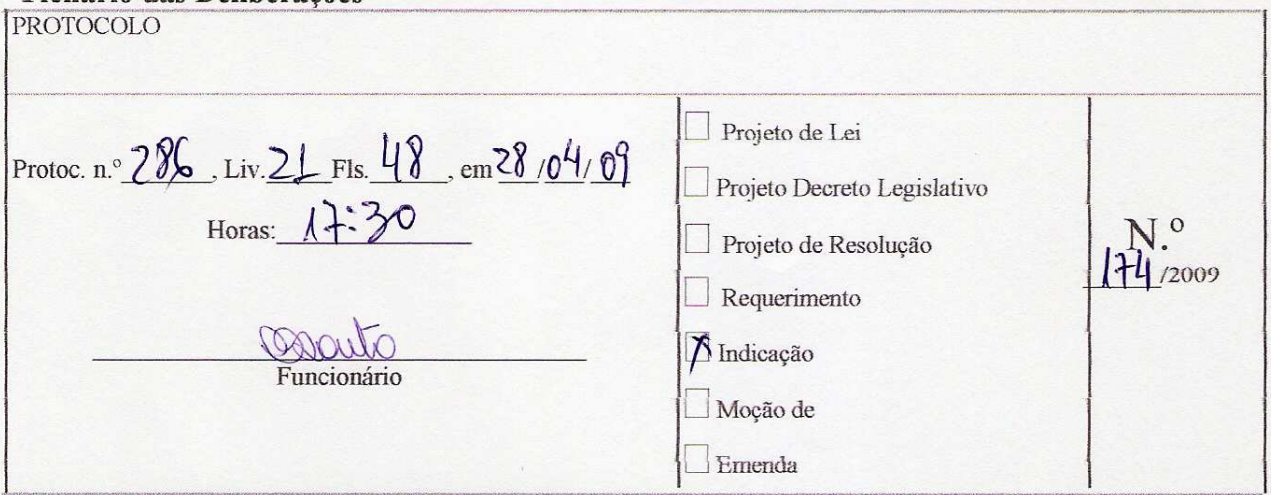 Plenário das Deliberações
PROTOCOLO
Protoc. n.º 286, Liv. 21 Fls. 48, em 28/04/09
Horas: 17:30
Funcionário
Projeto de Lei
Projeto Decreto Legislativo
Projeto de Resolução
Requerimento
X Indicação
Moção de
Emenda
N.º
174/2009